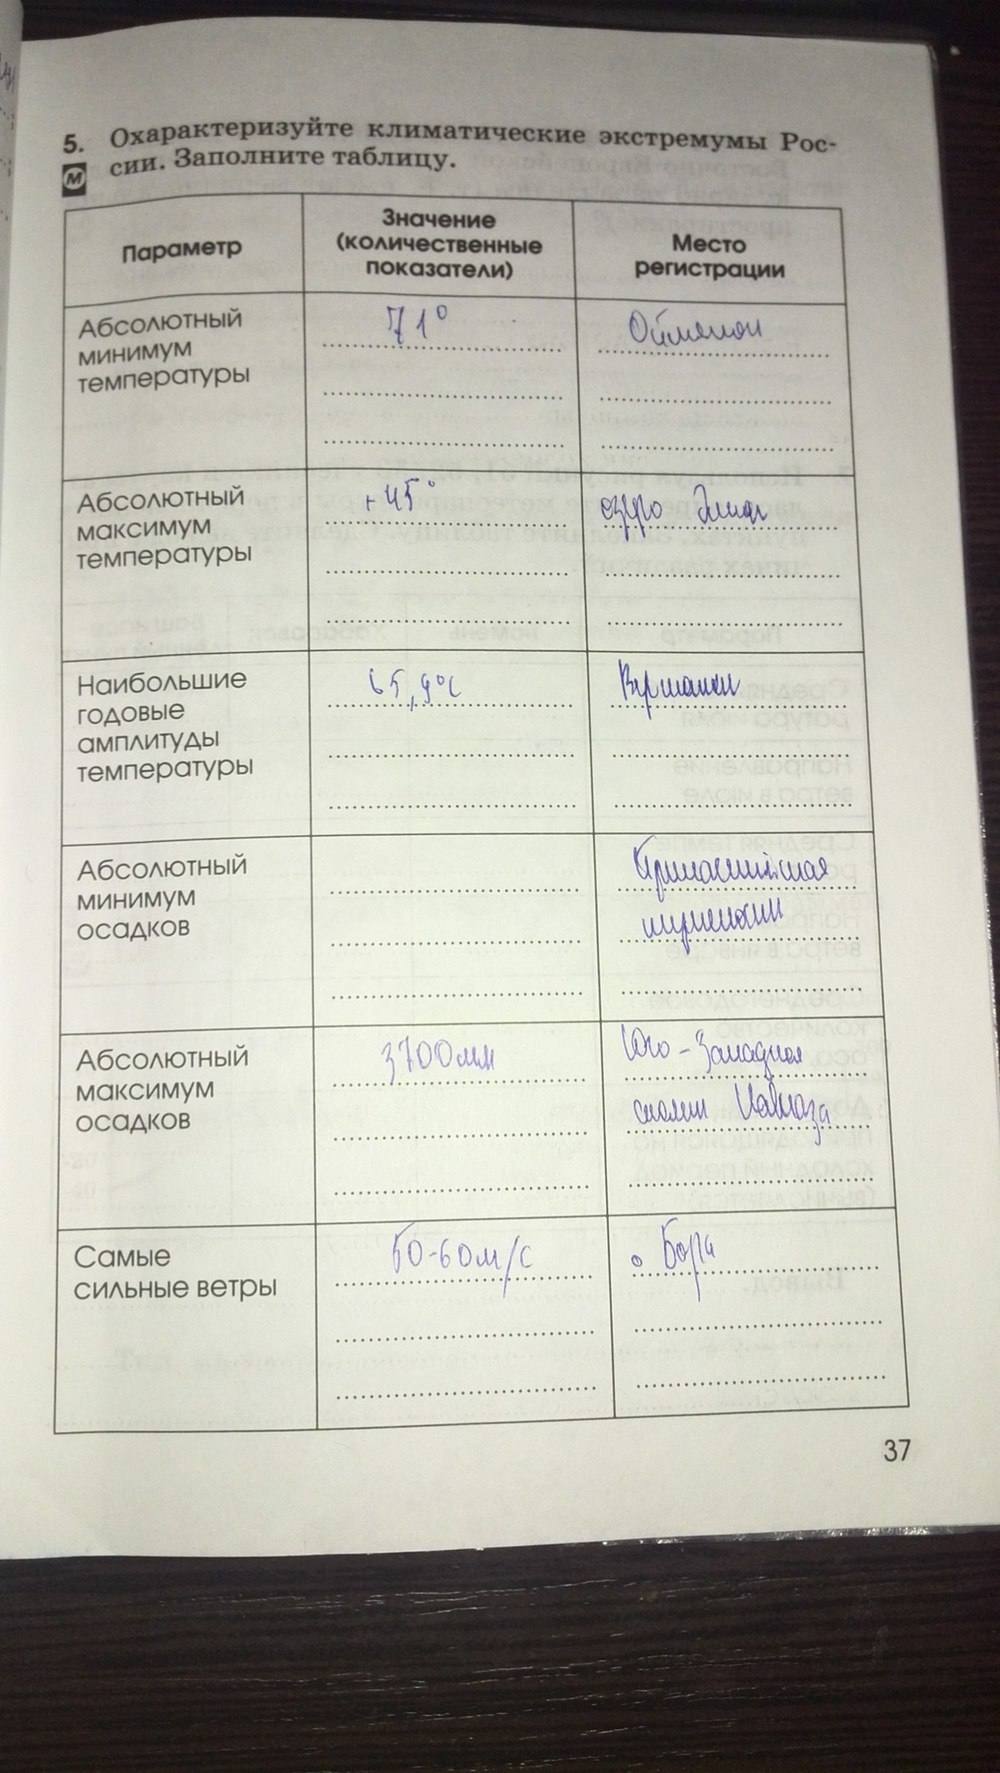 5. Охарактеризуйте климатические экстремумы Рос-
М сии. Заполните таблицу.
Параметр
Значение
(количественные
показатели)
Место
регистрации
Абсолютный
минимум
температуры
71°
Оймякон
Абсолютный
максимум
температуры
+45°
озеро Эльтон
Наибольшие
годовые
амплитуды
температуры
65,9°С
Абсолютный
минимум
осадков
Прикаспийская
низменность
Абсолютный
максимум
осадков
3700мм
Юго-Западная
Кавказа
Самые
сильные ветры
50-60м/с
Бора
37